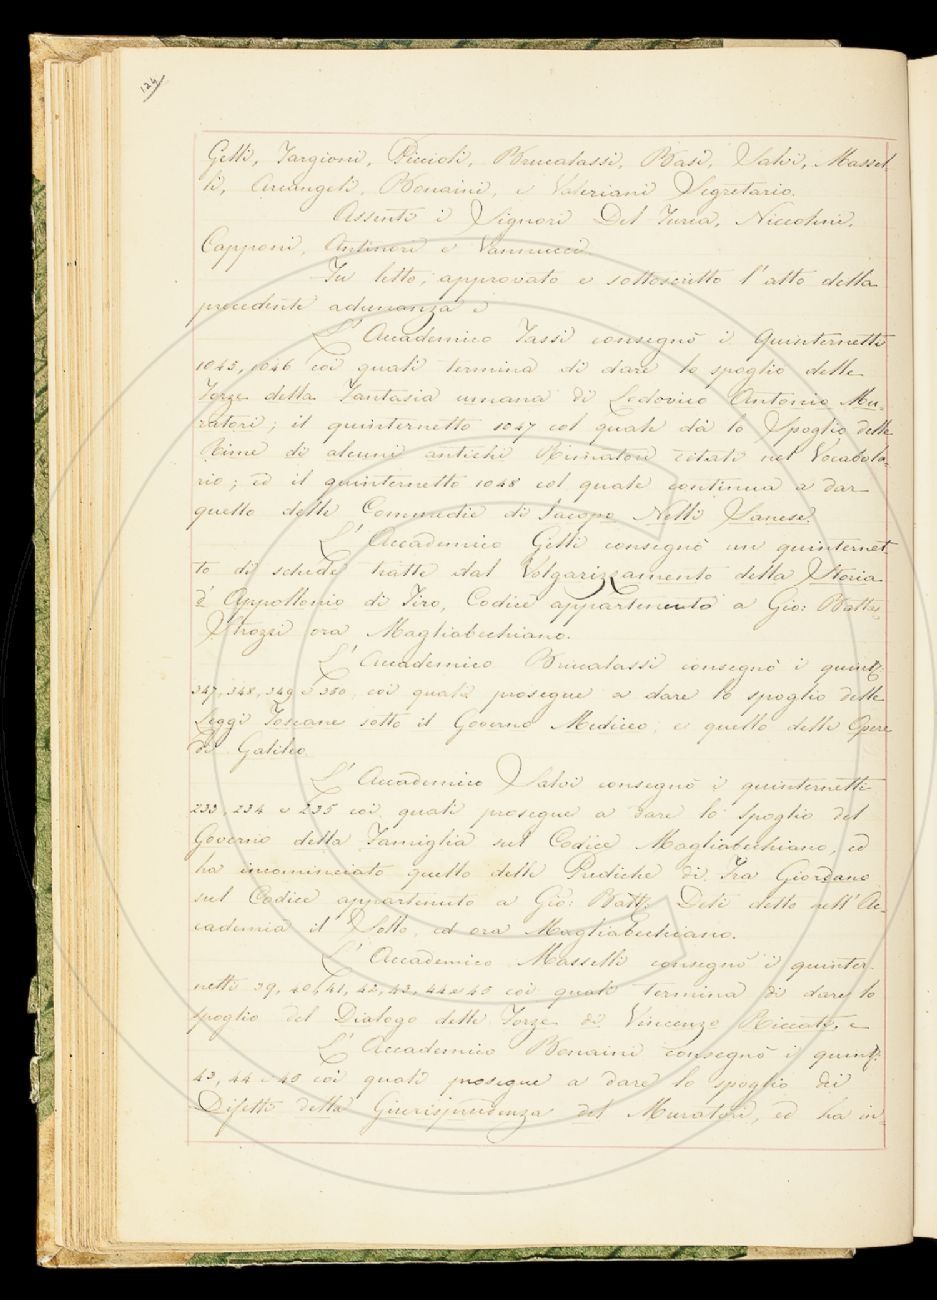 124
Gelli, Targioni, Piccioli, Brucalassi, Basi, Salvi, Massel-
li, Arcangeli, Bonaini, e Valeriani Segretario.
Assenti i Signori Del Furia, Niccolini,
Capponi, Antinori e Vannucci.
Fu letto, approvato e sottoscritto l'atto della
precedente adunanza e
L'Accademico Tassi consegnò i Quinternetti
1045, 1046 coi quali termina di dare lo spoglio delle
Forze della Fantasia umana di Lodovico Antonio Mu-
ratori; il quinternetto 1047 col quale dà lo Spoglio delle
Rime di alcuni antichi Rimatori citati nel Vocabola-
rio; ed il quinternetto 1048 col quale continua a dar
quello delle Commedie di Jacopo Nelli Sanese.
L'Accademico Gelli consegnò un quinternet
to di schede tratte dal Volgarizzamento della Storia
d'Appollonio di Tiro, Codice appartenuto a Gio: Batta
Strozzi ora Magliabechiano.
L'Accademico Brucalassi consegnò i quint:
347, 348, 349 e 350, coi quali prosegue a dare lo spoglio delle
Leggi Toscane sotto il Governo Mediceo, e quello delle Opere
di Galileo.
L'Accademico Salvi consegnò i quinternetti
233, 234 e 235 coi quali prosegue a dare lo Spoglio del
Governo della Famiglia sul Codice Magliabechiano, ed
ha incominciato quello delle Prediche di Fra Giordano
sul Codice appartenuto a Gio: Batt: Deti detto nell'Ac-
cademia il Sollo, ed ora Magliabechiano.
L'Accademico Masselli consegnò i quinter-
netti 39, 40, 41, 42, 43, 44 e 45 coi quali termina di dare lo
spoglio del Dialogo delle Forze di Vincenzo Riccati, e
L'Accademico Bonaini consegnò i quint:
43, 44 e 45 coi quali prosegue a dare lo spoglio dei
Difetti della Giurisprudenza del Muratori, ed ha in-